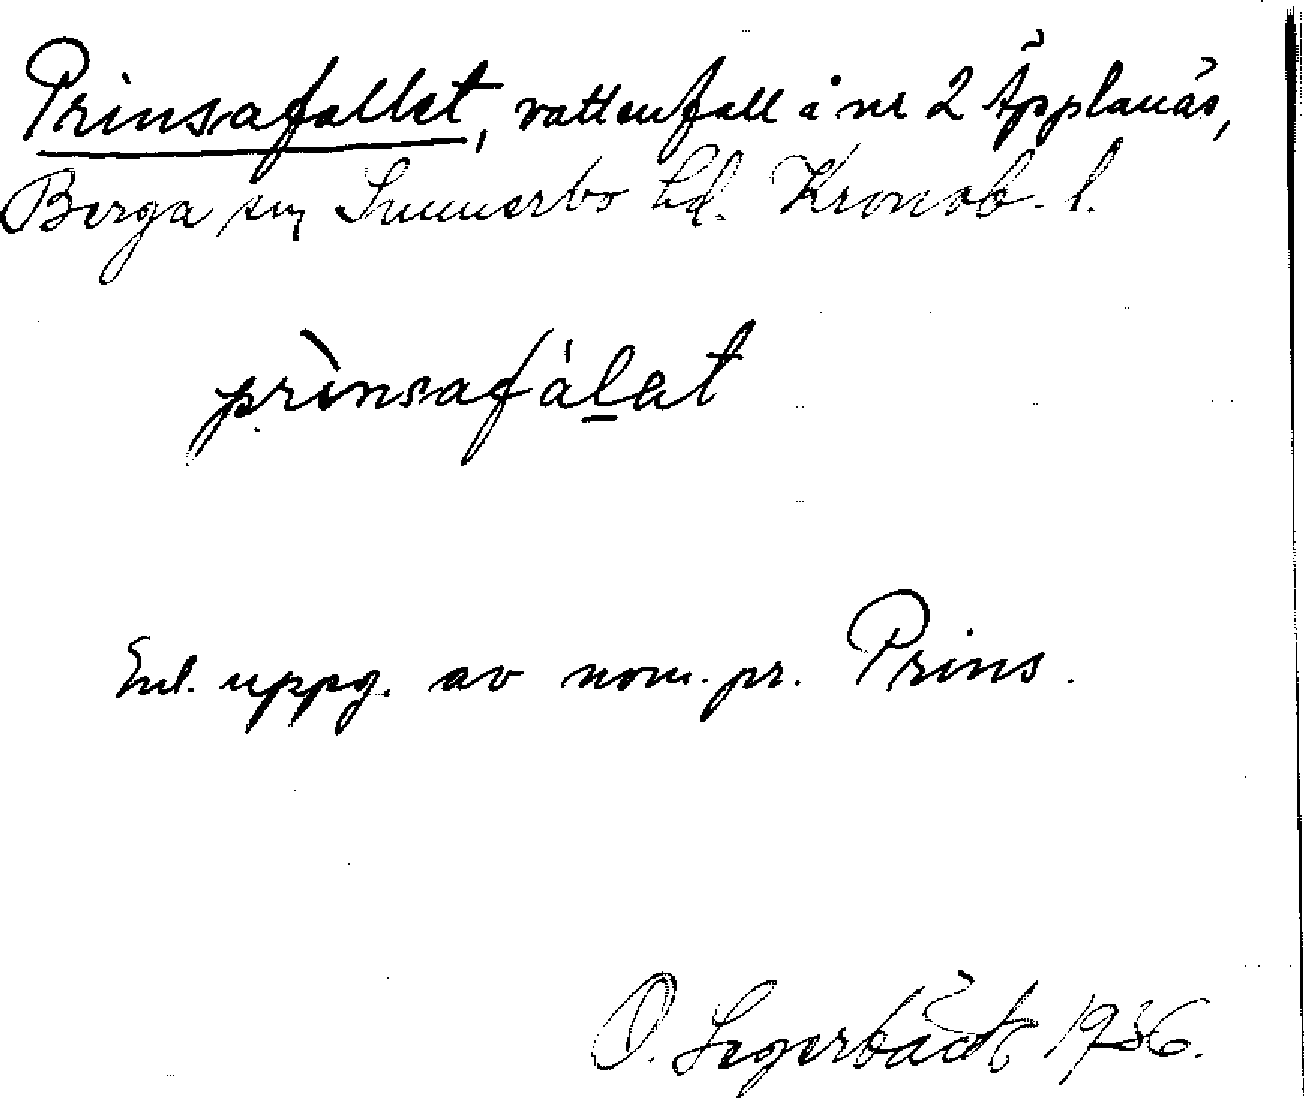 Prinsafallet, vattenfall å nr 2 Äpplanäs,
Berga sn, Sunnerbo hd. Kronob. l.
prìnsafálat
Enl. uppg. av nom. pr. Prins.
O. Segerbäck 1936.